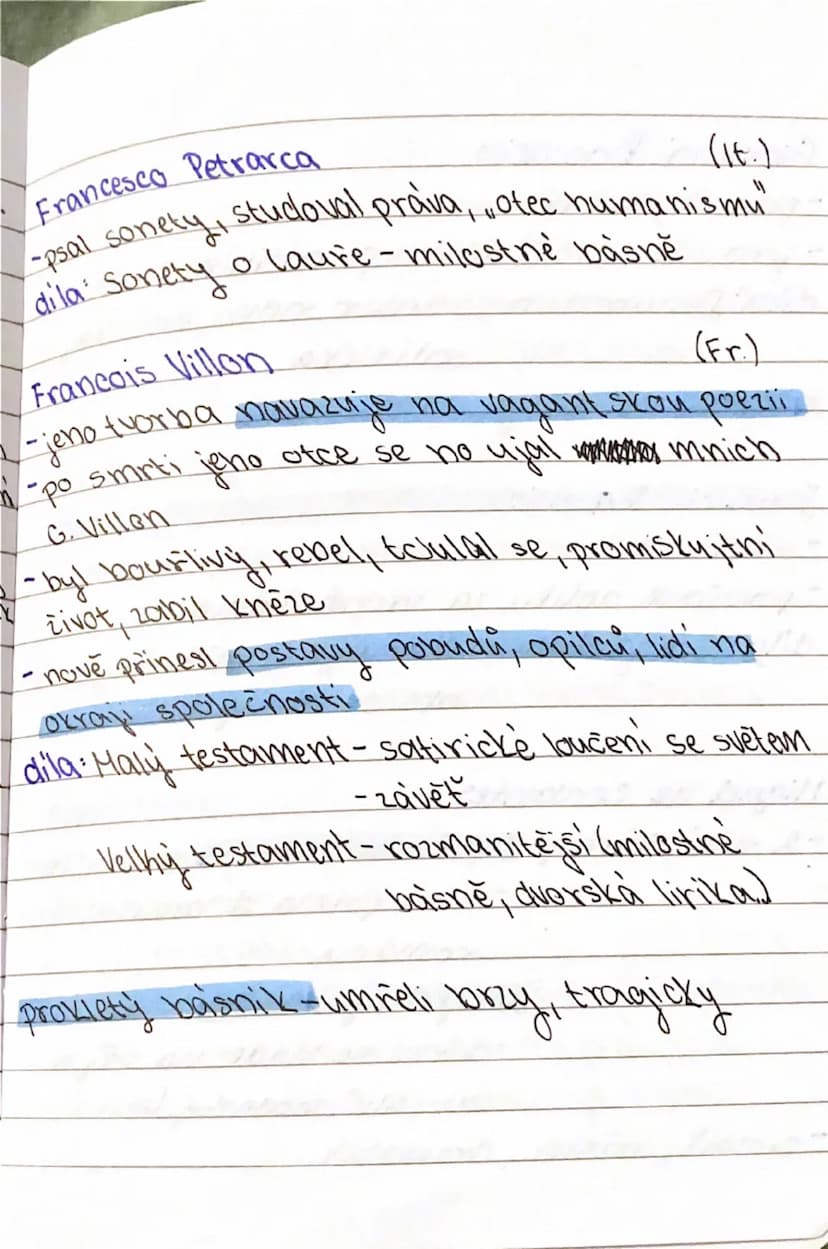 Francesco Petrarca (It.)
-psal sonety, studoval práva, „otec humanismu"
díla: Sonety o Lauře - milostné básně
Francois Villon (Fr.)
-jeho tvorba navazuje na vagantskou poezii
-po smrti jeho otce se ho ujal mnich
G. Villon
-byl bouřlivý, rebel, toulal se, promiskujtní
život, zabil kněze
- nově přinesl postavy pobudů, opilců, lidí na
okraji společnosti
díla: Malý testament - satirické loučení se světem
- závěť
Velký testament - rozmanitější (milostné
básně, dvorská lirika..)
prokletý básnik - umřeli brzy, tragicky